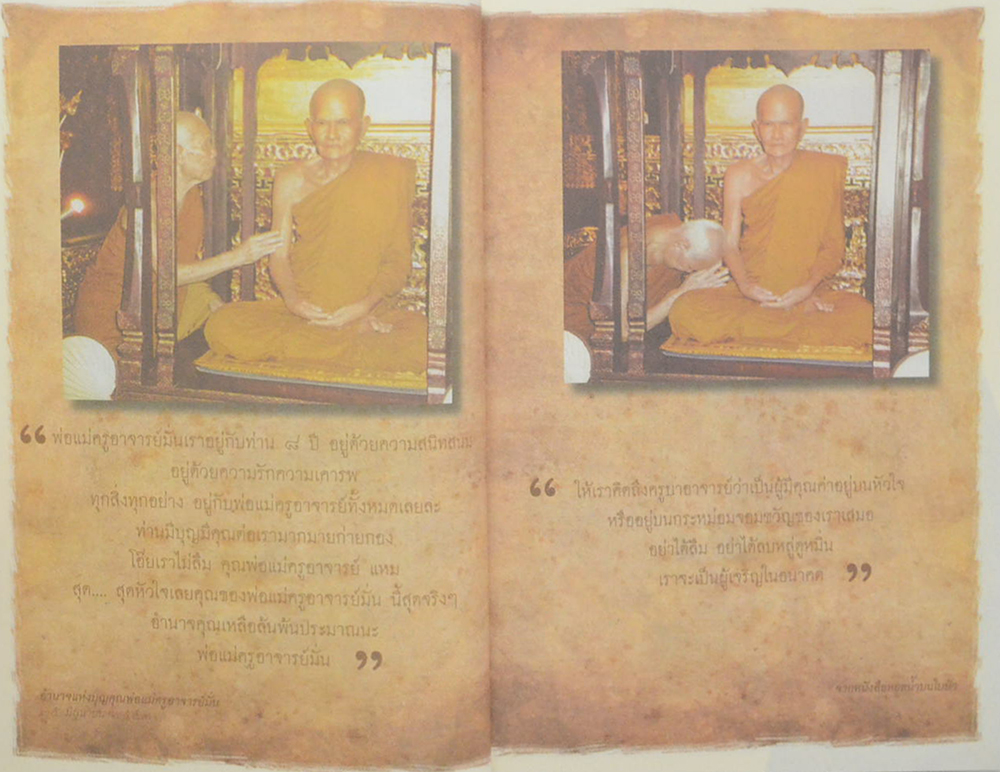 “ พ่อแม่ครูอาจารย์มั่นเราอยู่กับท่าน ๘ ปี อยู่ด้วยความสนิทสนม
อยู่ด้วยความรักความเคารพ
ทุกสิ่งทุกอย่าง อยู่กับพ่อแม่ครูอาจารย์ทั้งหมดเลยละ
ท่านมีบุญมีคุณต่อเรามากมายก่ายกอง
โอ๊ยเราไม่ลืม คุณพ่อแม่ครูอาจารย์ แหม
สุด.... สุดหัวใจเลยคุณของพ่อแม่ครูอาจารย์มั่น นี้สุดจริงๆ
อำนาจคุณเหลือล้นพ้นประมาณนะ
พ่อแม่ครูอาจารย์มั่น ”
อำนาจแห่งบุญคุณพ่อแม่ครูอาจารย์มั่น
“ ให้เราคิดถึงครูบาอาจารย์ว่าเป็นผู้มีคุณค่าอยู่บนหัวใจ
หรืออยู่บนกระหม่อมจอมขวัญของเราเสมอ
อย่าได้ลืม อย่าได้ลบหลู่ดูหมิ่น
เราจะเป็นผู้เจริญในอนาคต ”
จากหนังสือหยดน้ำบนใบบัว